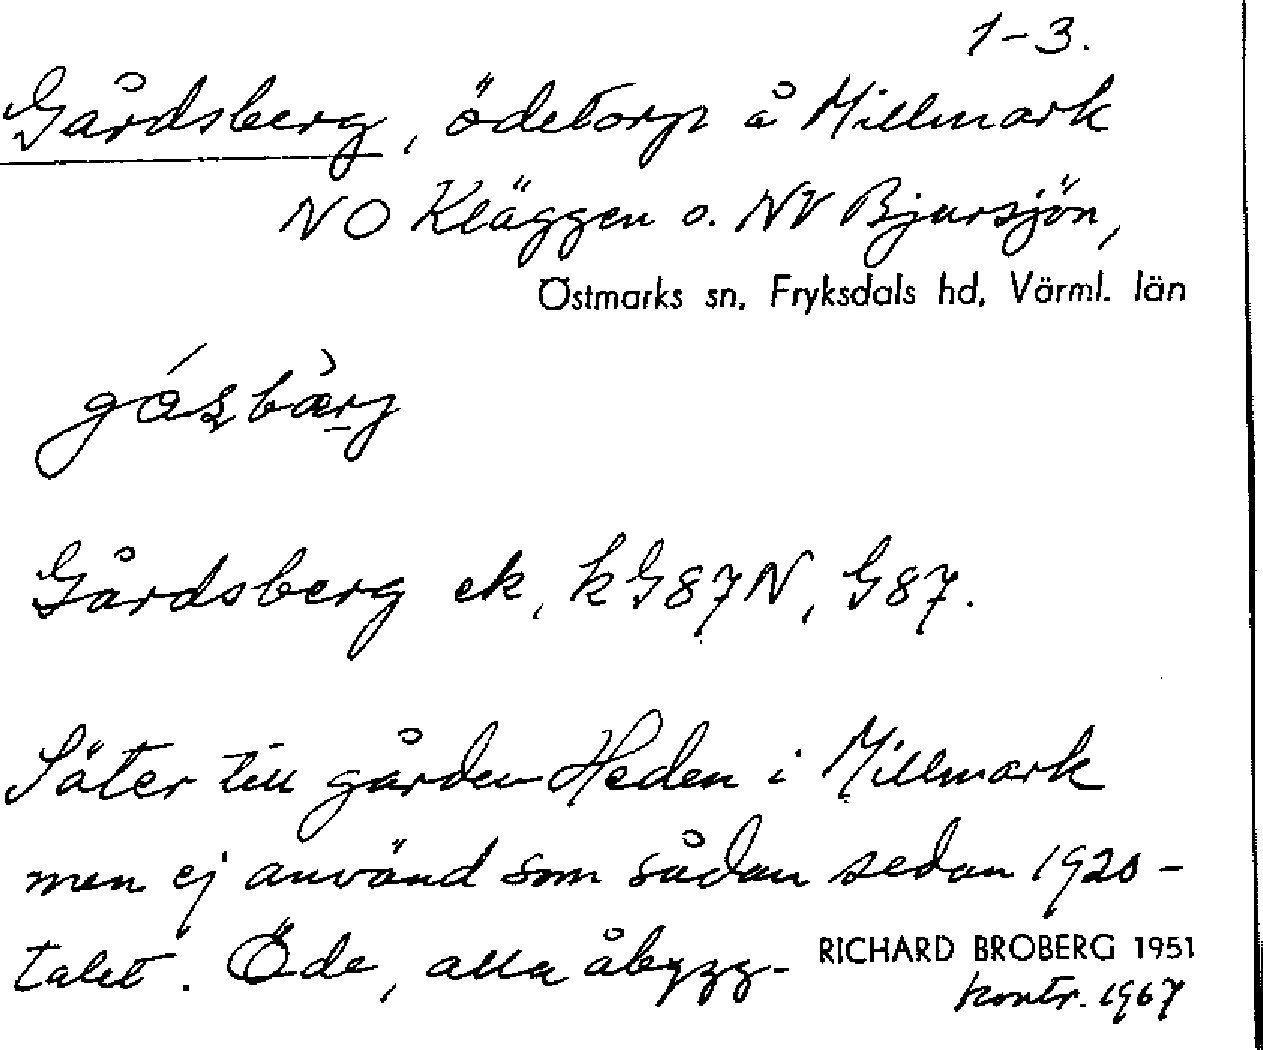 1-3.
Gårdsberg, ödetorp å Millmark
NO Kläggen o. NV Bjursjön,
Östmarks sn, Fryksdals hd, Värml. län
Gårdsberg ek, kG87N, G87.
Säter till gården Heden i Millmark
men ej använd som sådan sedan 1920-
talet. Öde, alla åbygg-
RICHARD BROBERG 1951
kontr. 1967